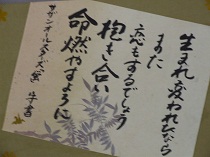 生まれ変われるなら
また
恋もするでしょう
抱き合い
命燃やすように
サザンオールスターズ